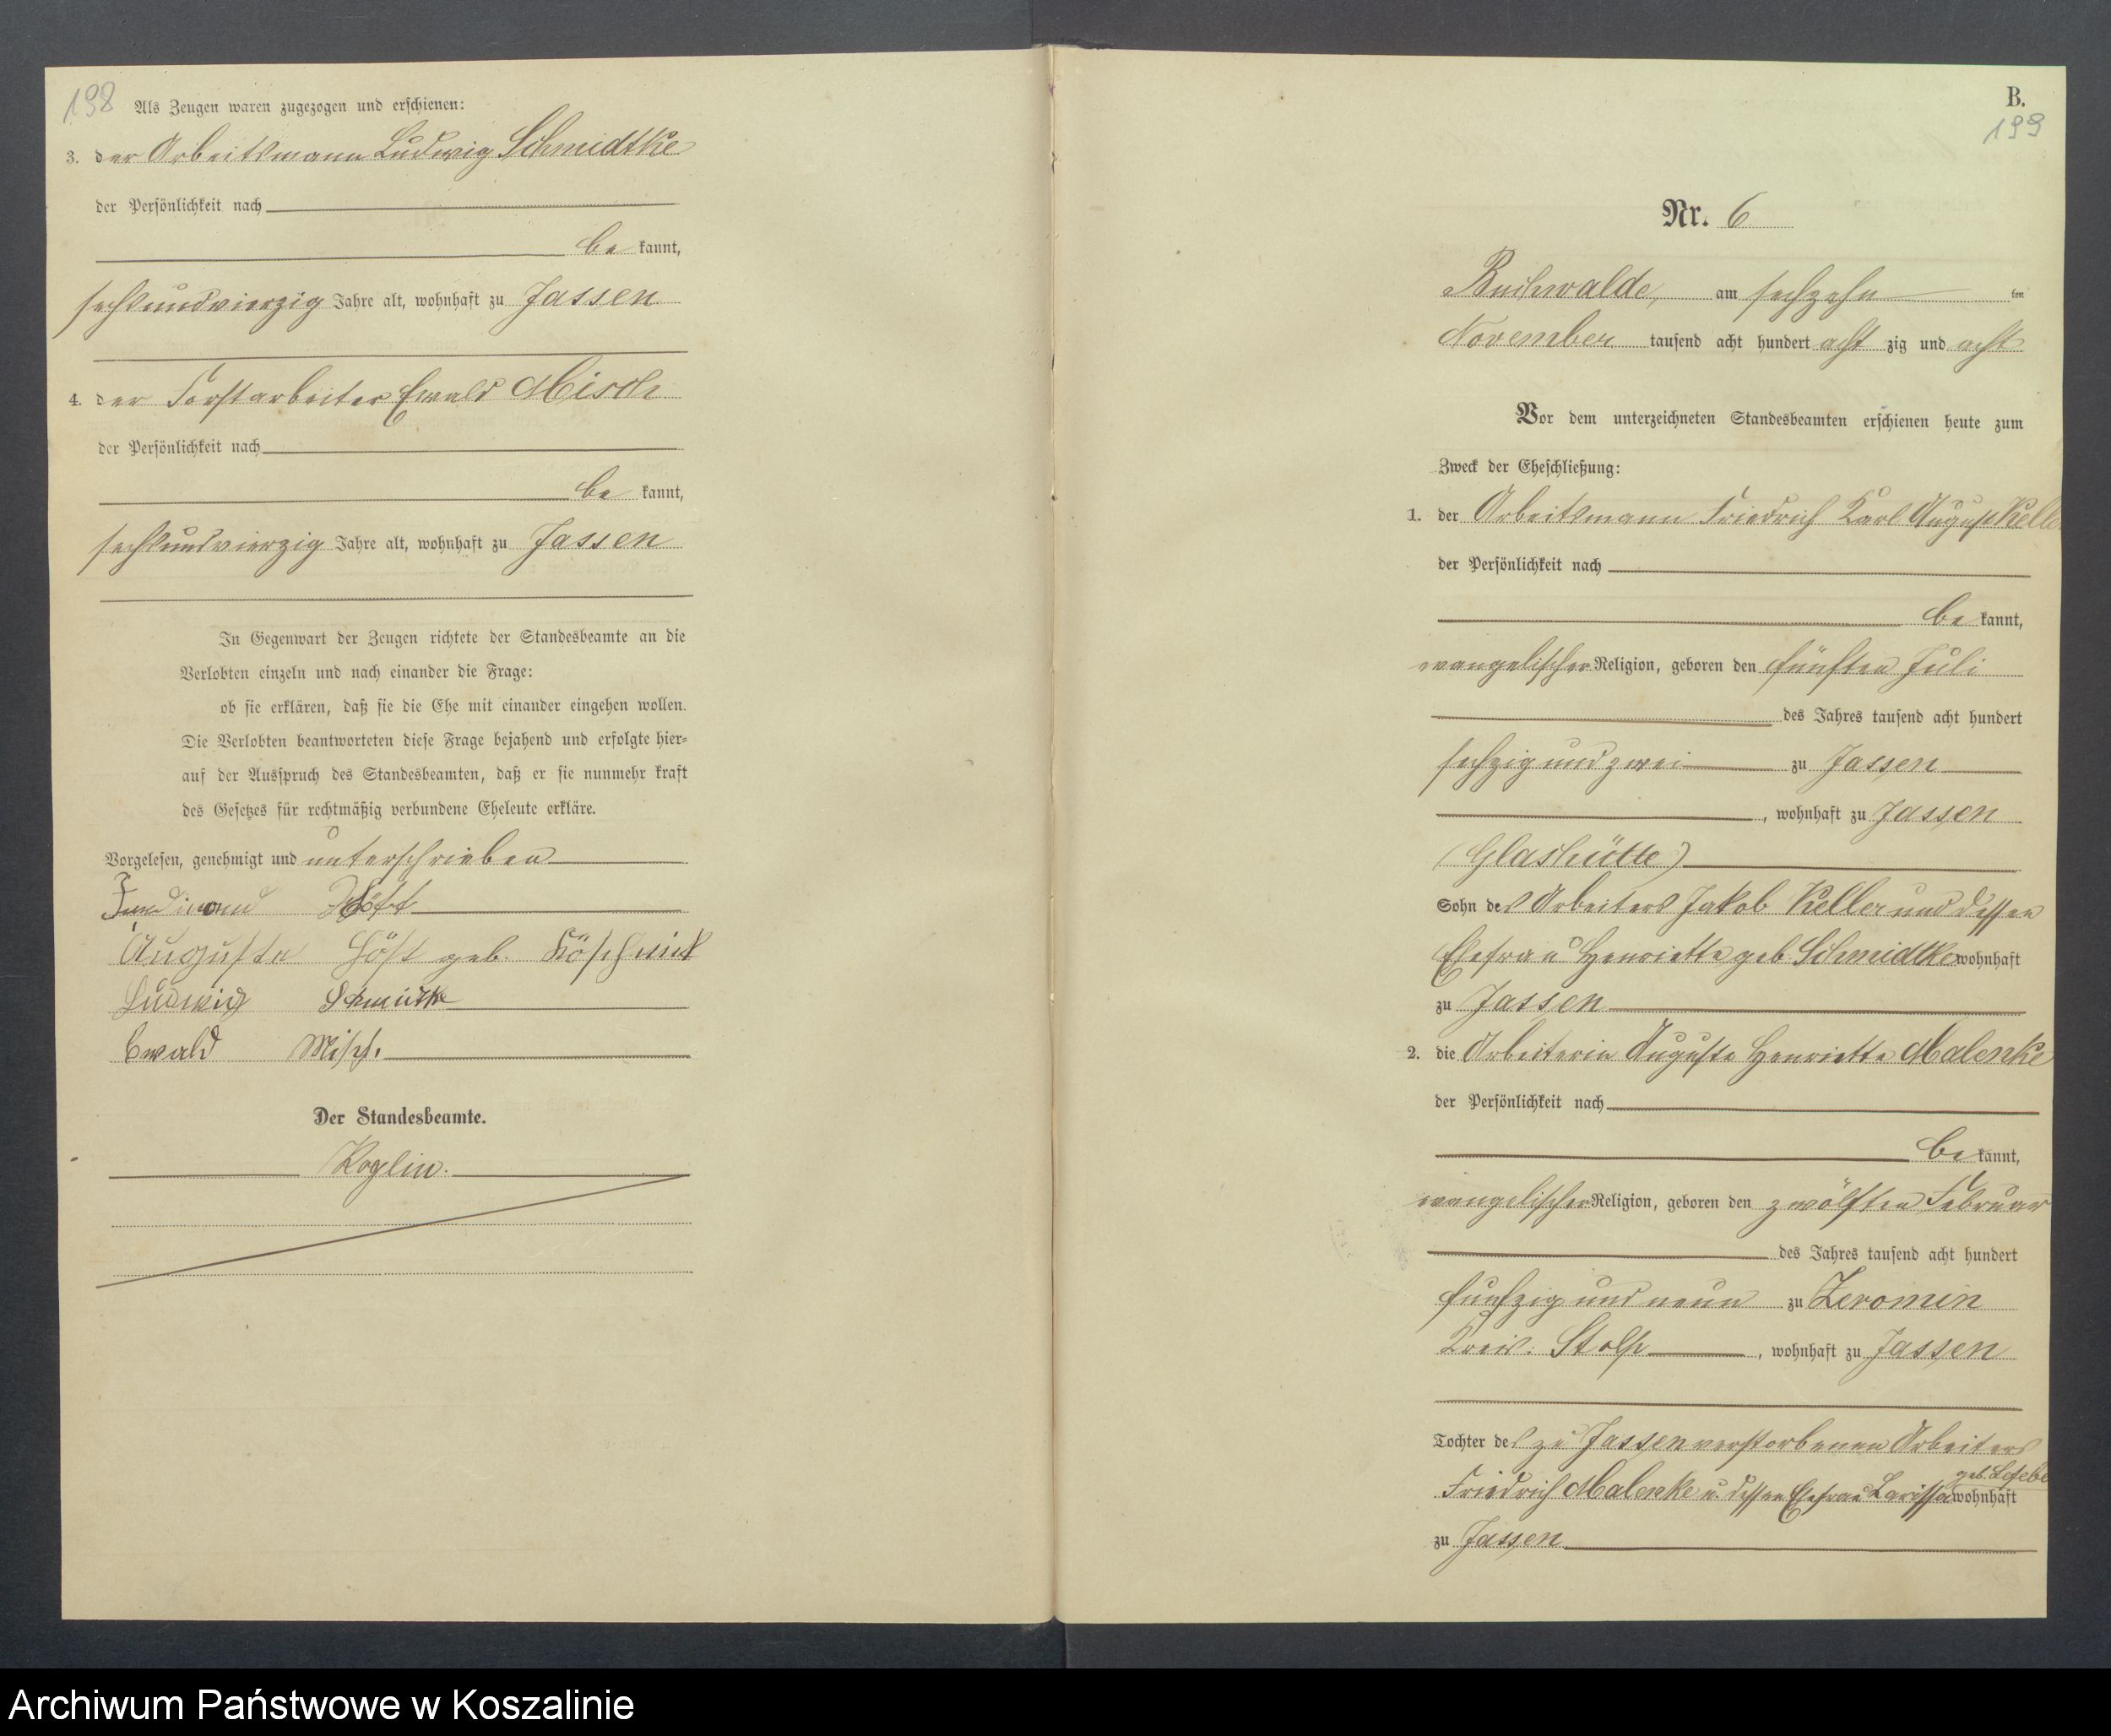 198
Als Zeugen waren zugezogen und erschienen:
3. der Arbeitsmann Ludwig Schmidtke
der Persönlichkeit nach
be kannt,
sechsundvierzig Jahre alt, wohnhaft zu Jassen
4. der Forstarbeiter Ewald Misch
der Persönlichkeit nach
be kannt,
sechsundvierzig Jahre alt, wohnhaft zu Jassen
In Gegenwart der Zeugen richtete der Standesbeamte an die
Verlobten einzeln und nach einander die Frage:
ob sie erklären, daß sie die Ehe mit einander eingehen wollen.
Die Verlobten beantworteten diese Frage bejahend und erfolgte hier=
auf der Ausspruch des Standesbeamten, daß er sie nunmehr kraft
des Gesetzes für rechtmäßig verbundene Eheleute erkläre.
Vorgelesen, genehmigt und unterschrieben
Auguste Höft geb.
Ludwig
Ewald Misch.
Der Standesbeamte.
Roglin.
B.
199
Nr. 6
Buchwalde, am sechzehn ten
November tausend acht hundert acht zig und acht
Vor dem unterzeichneten Standesbeamten erschienen heute zum
Zweck der Eheschließung:
1. der Arbeitsmann Friedrich Karl August Keller
der Persönlichkeit nach
be kannt,
evangelischer Religion, geboren den fünften Juli
des Jahres tausend acht hundert
sechzig und zwei zu Jassen
, wohnhaft zu Jassen
(Glashütte)
Sohn des Arbeiters Jakob Keller und dessen
Ehefrau Henriette geb. Schmidtke wohnhaft
zu Jassen
2. die Arbeiterin Auguste Henriette Malenke
der Persönlichkeit nach
be kannt,
evangelischer Religion, geboren den zwölften Februar
des Jahres tausend acht hundert
funfzig und neun zu Zeromin
Kreis. Stolp, wohnhaft zu Jassen
Tochter des zu Jassen verstorbenen Arbeiters
geb.
Friedrich Malenke u. dessen Ehefrau wohnhaft
zu Jassen
Archiwum Państwowe w Koszalinie